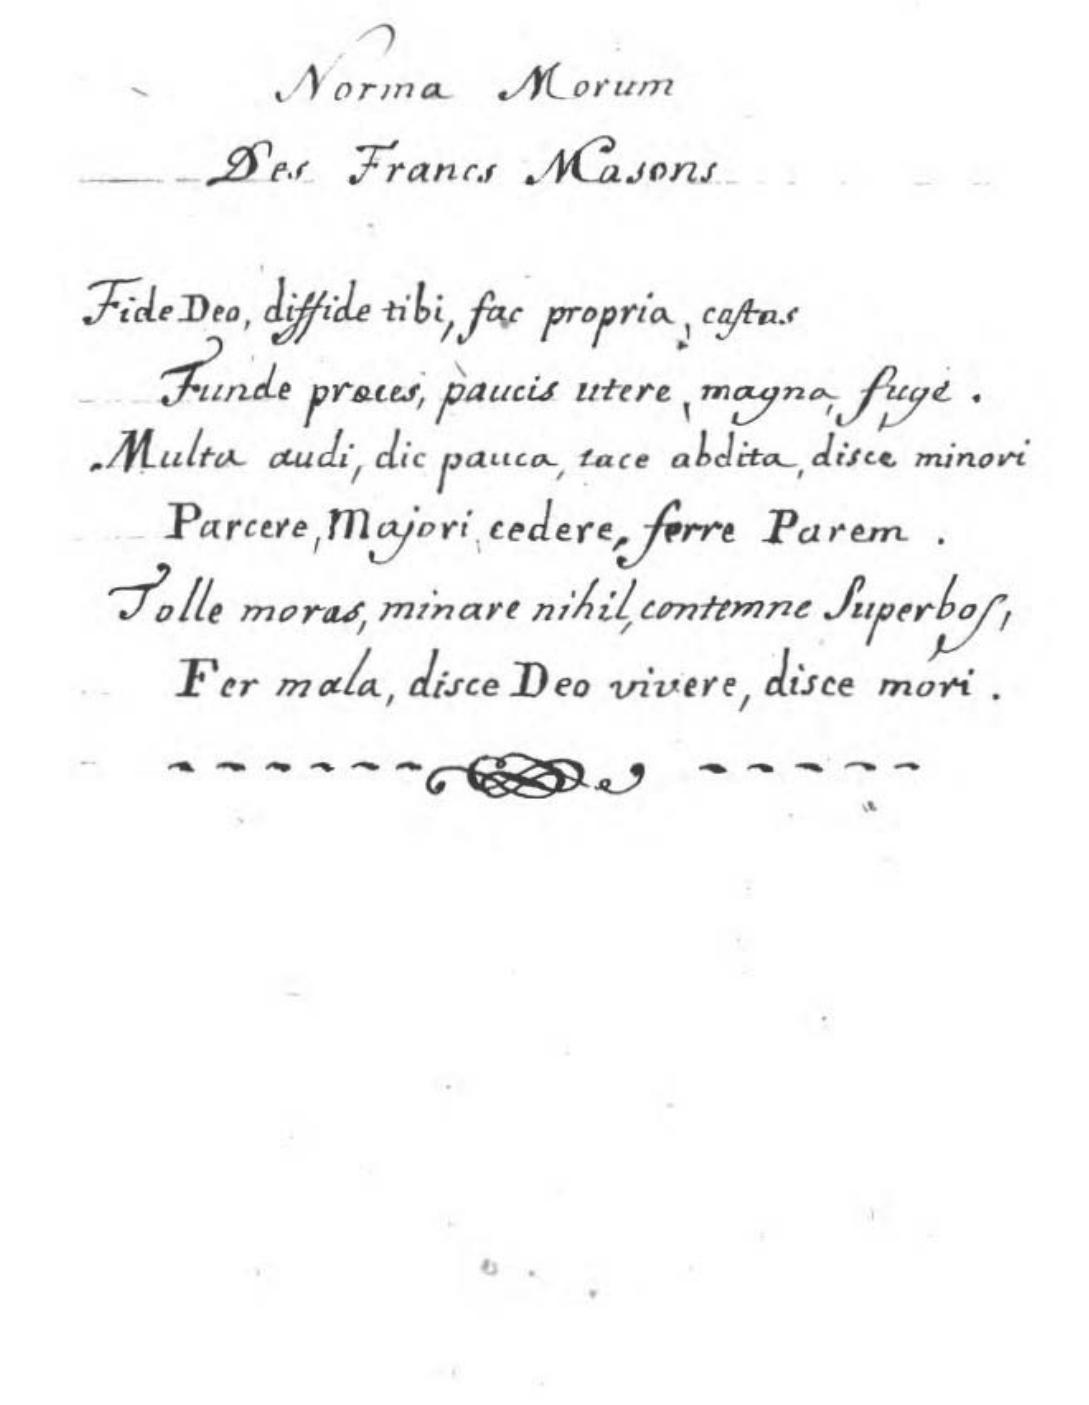 Norma Morum
Des Francs Masons
Fide Deo, diffide tibi, fac propria, castas
Funde proeces, paucis utere, magna, fuge.
Multa audi, dic pauca, tace abdita, disce minori
Parcere, Majori cedere, ferre Parem.
Tolle moras, minare nihil, contemne Superbos,
Fer mala, disce Deo vivere, disce mori.